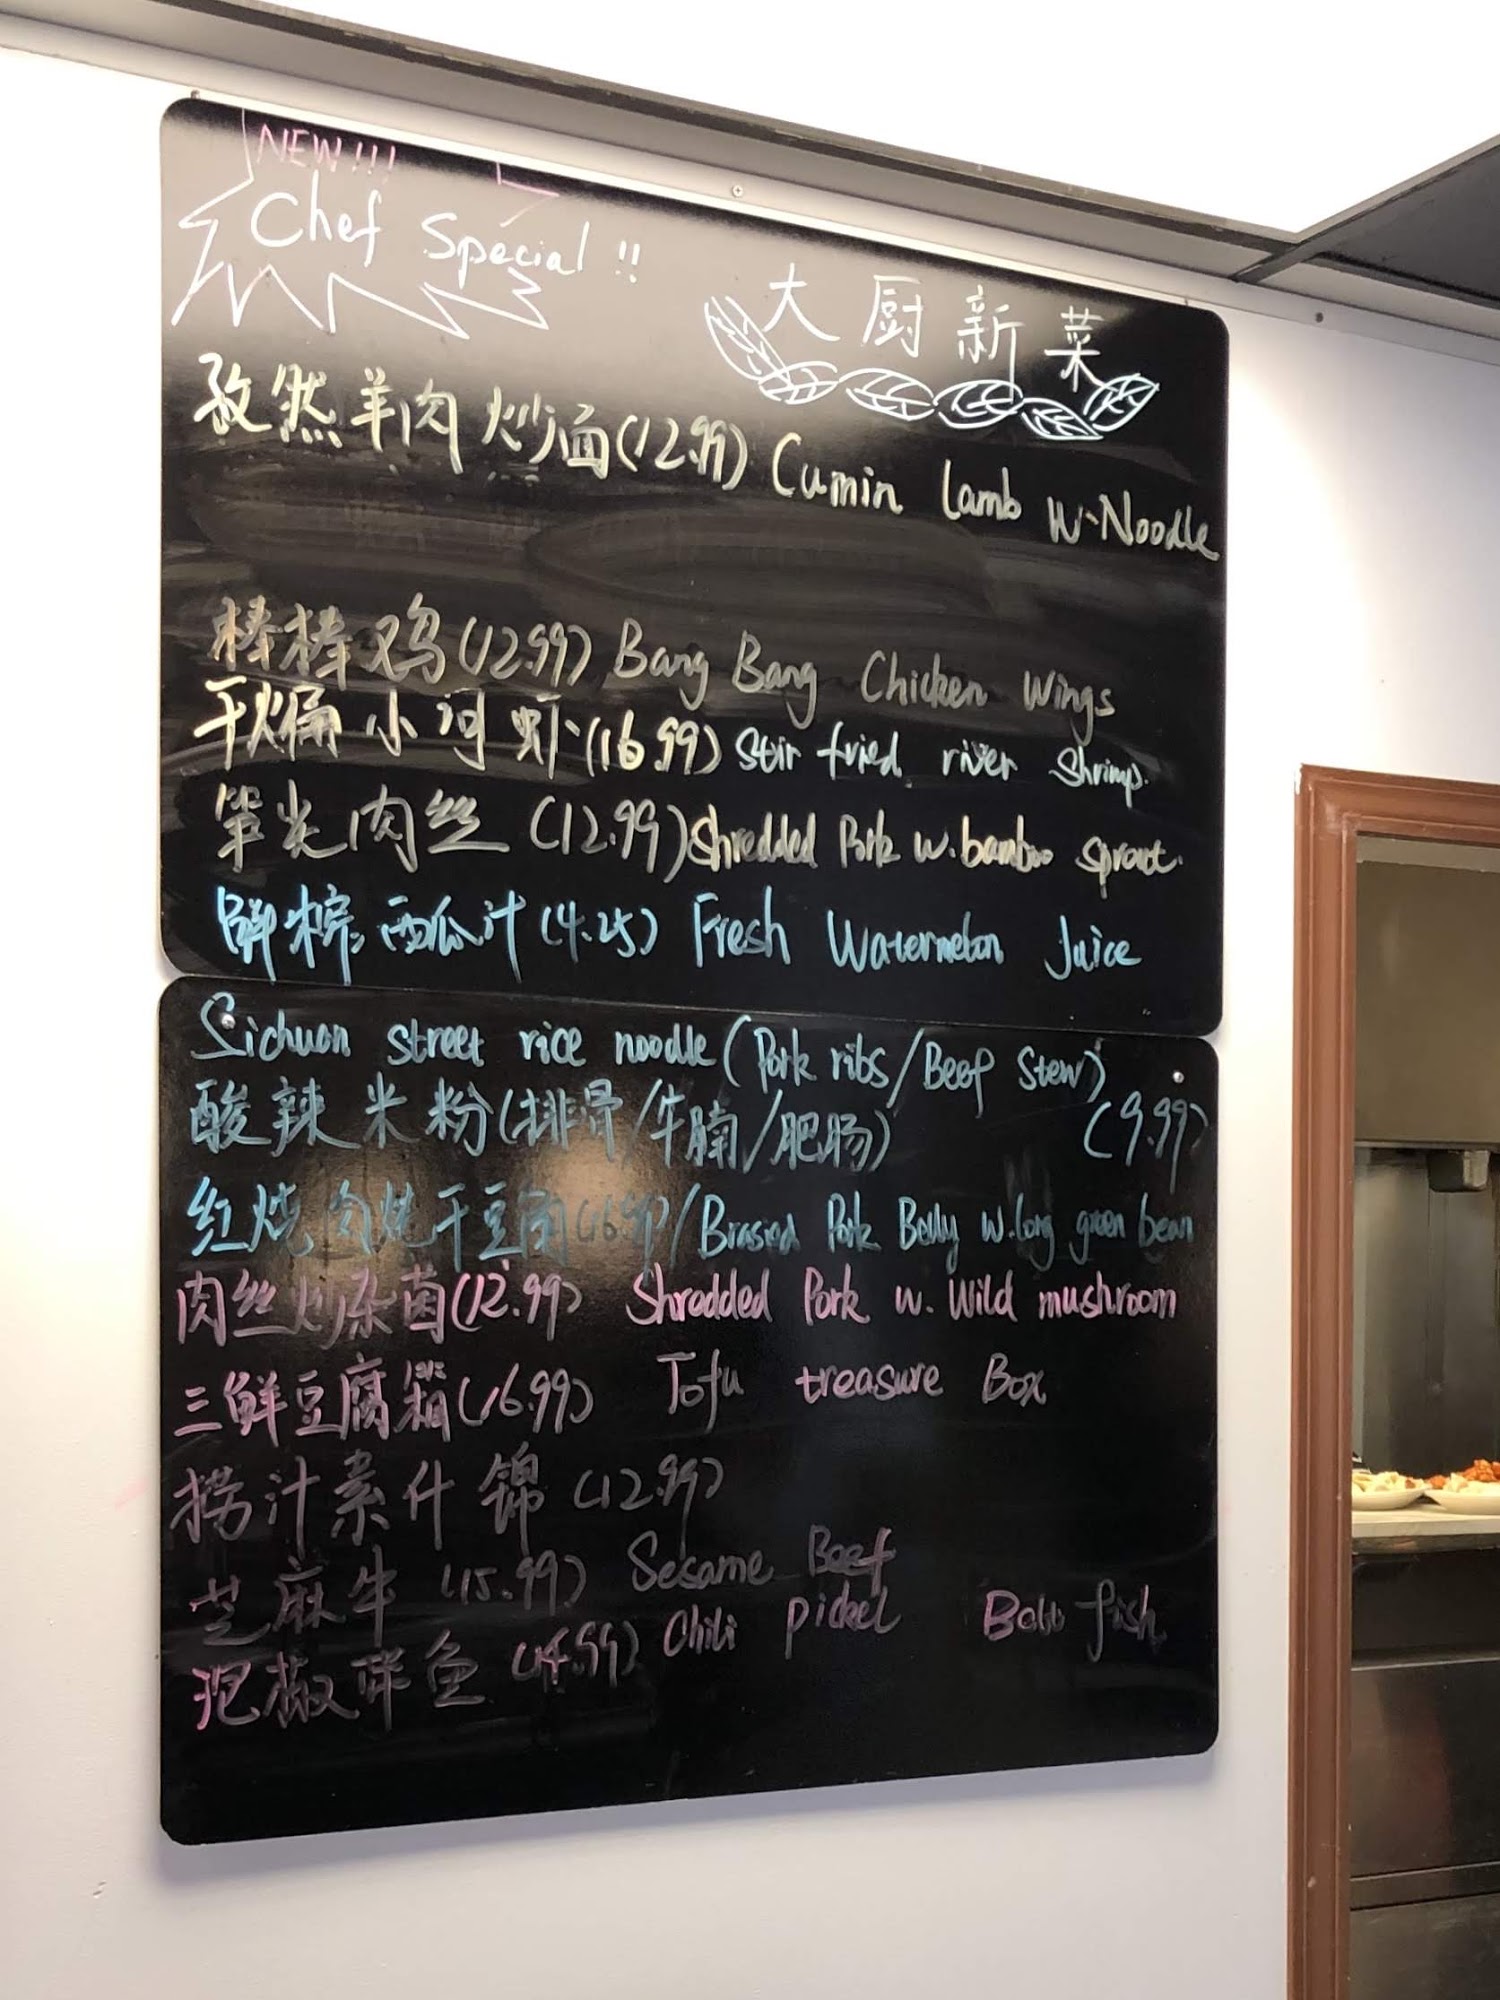 NEW!!!
Chef Special!!
大厨新菜
孜然羊肉炒面(12.99) Cumin lamb w.Noodle
棒棒鸡(12.99) Bang Bang Chicken Wings
干煸小河虾(16.99) Stir fried river shrimp.
笋尖肉丝(12.99) Shredded Pork w.bamboo sprout.
鲜榨西瓜汁(4.25) Fresh Watermelon Juice
Sichuan street rice noodle (Pork ribs/Beef Stew)
酸辣米粉(排骨/牛腩/肥肠) (9.99)
红烧肉烧干豆角 /Brasied Pork Belly w.long green bean
肉丝炒杂菌(12.99) Shredded Pork w. Wild mushroom
三鲜豆腐箱(16.99) Tofu treasure Box
捞汁素什锦(12.99)
芝麻牛(15.99) Sesame Beef
泡椒鲜鱼(14.99) Chili pickel fish